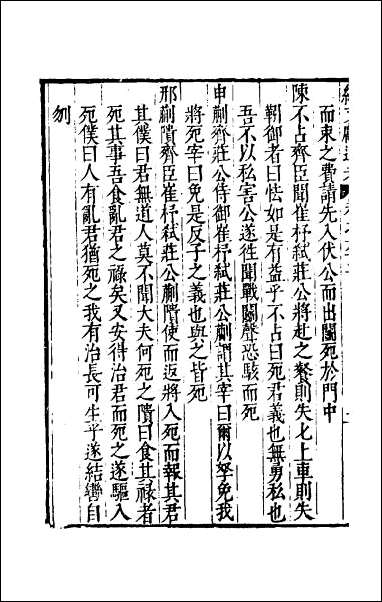 而束之費請先入伏公而出鬬死於門中
陳不占齊臣聞崔杼弑莊公將赴之餐則失匕上車則失
鞙御者曰怯如是有益乎不占曰死君義也無勇私也
吾不以私害公遂往聞戰鬬聲恐駭而死
申蒯齊莊公侍御崔杼弑莊公蒯謂其宰曰爾以孥免我
將死宰曰免是反子之義也與之皆死
邢蒯隤齊臣崔杼弑莊公蒯隤使而返將入死而報其君
其僕曰君無道人莫不聞大夫何死之隤曰食其祿者
死其事吾食亂君之祿矣又安得治君而死之遂驅入
死僕曰人有亂君猶死之我有治長可生乎遂結轡自
刎